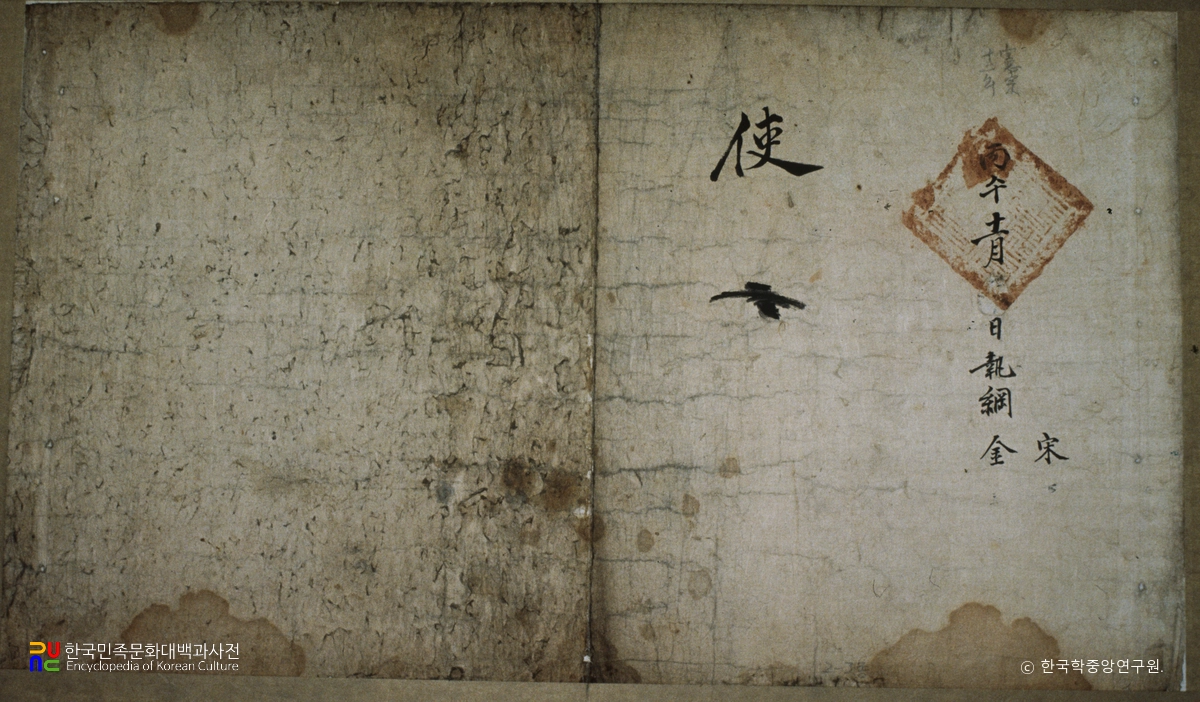 憲宗
十二年
丙午十二月 日 執綱
宋
金
使
한국민족문화대백과사전
Encyclopedia of Korean Culture
ⓒ 한국학중앙연구원.